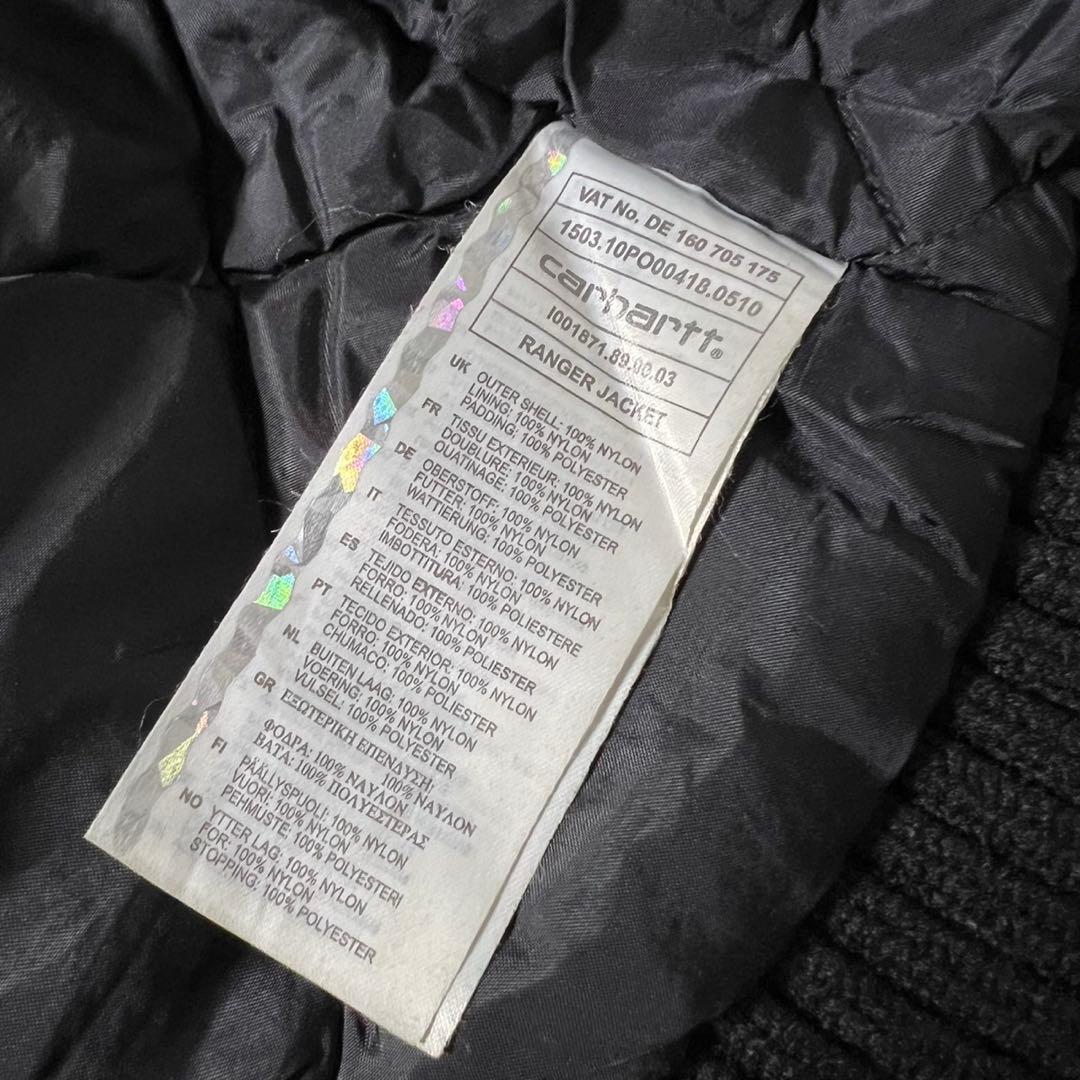 VAT No. DE 160 705 175
1503.10PO00418.0510
carhartt®
I001871.89.00.03
RANGER JACKET
UK OUTER SHELL: 100% NYLON
LINING: 100% NYLON
PADDING: 100% POLYESTER
FR TISSU EXTERIEUR: 100% NYLON
DOUBLURE: 100% NYLON
OUATINAGE: 100% POLYESTER
DE OBERSTOFF: 100% NYLON
FUTTER: 100% NYLON
WATTIERUNG: 100% POLYESTER
IT TESSUTO ESTERNO: 100% NYLON
FODERA: 100% NYLON
IMBOTTITURA: 100% POLIESTERE
ES TEJIDO EXTERNO: 100% NYLON
FORRO: 100% NYLON
RELLENADO: 100% POLIESTER
PT TECIDO EXTERIOR: 100% NYLON
FORRO: 100% NYLON
CHUMACO: 100% POLIESTER
NL BUITEN LAAG: 100% NYLON
VOERING: 100% NYLON
VULSEL: 100% POLYESTER
GR ΕΞΩΤΕΡΙΚΗ ΕΠΕΝΔΥΣΗ:
100% ΝΑΥΛΟΝ
ΦΟΔΡΑ: 100% ΝΑΥΛΟΝ
ΒΑΤΑ: 100% ΠΟΛΥΕΣΤΕΡΑΣ
FI PÄÄLLYSPUOLI: 100% NYLON
VUORI: 100% NYLON
PEHMUSTE: 100% POLYESTERI
NO YTTER LAG: 100% NYLON
FOR: 100% NYLON
STOPPING, 100% POLYESTER